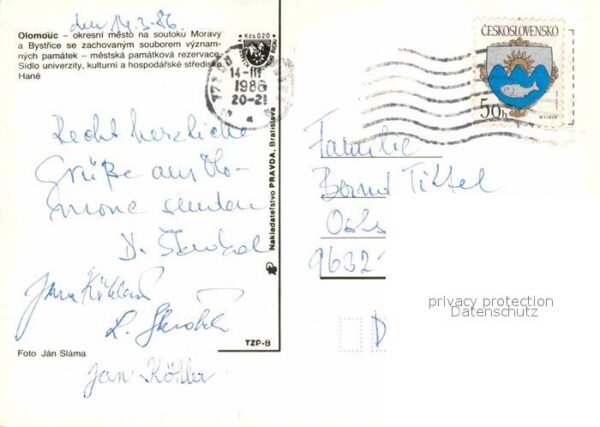 den 14.3.86.
Olomouc – okresní město na soutoku Moravy
a Bystřice se zachovaným souborem význam-
ných památek – městská památková rezervace.
Sídlo univerzity, kulturní a hospodářské středisko
Hané
Kčs 0,20
14-III
1986
20-21
a
ČESKOSLOVENSKO
50h
Recht herzliche
Grüße aus Olo-
mouc senden
Jan Köhler
Foto Ján Sláma
Jan Köhler
Nakladateľstvo PRAVDA, Bratislava
TZP-B
Familie
Bernd Tittel
9632
D
privacy protection
Datenschutz